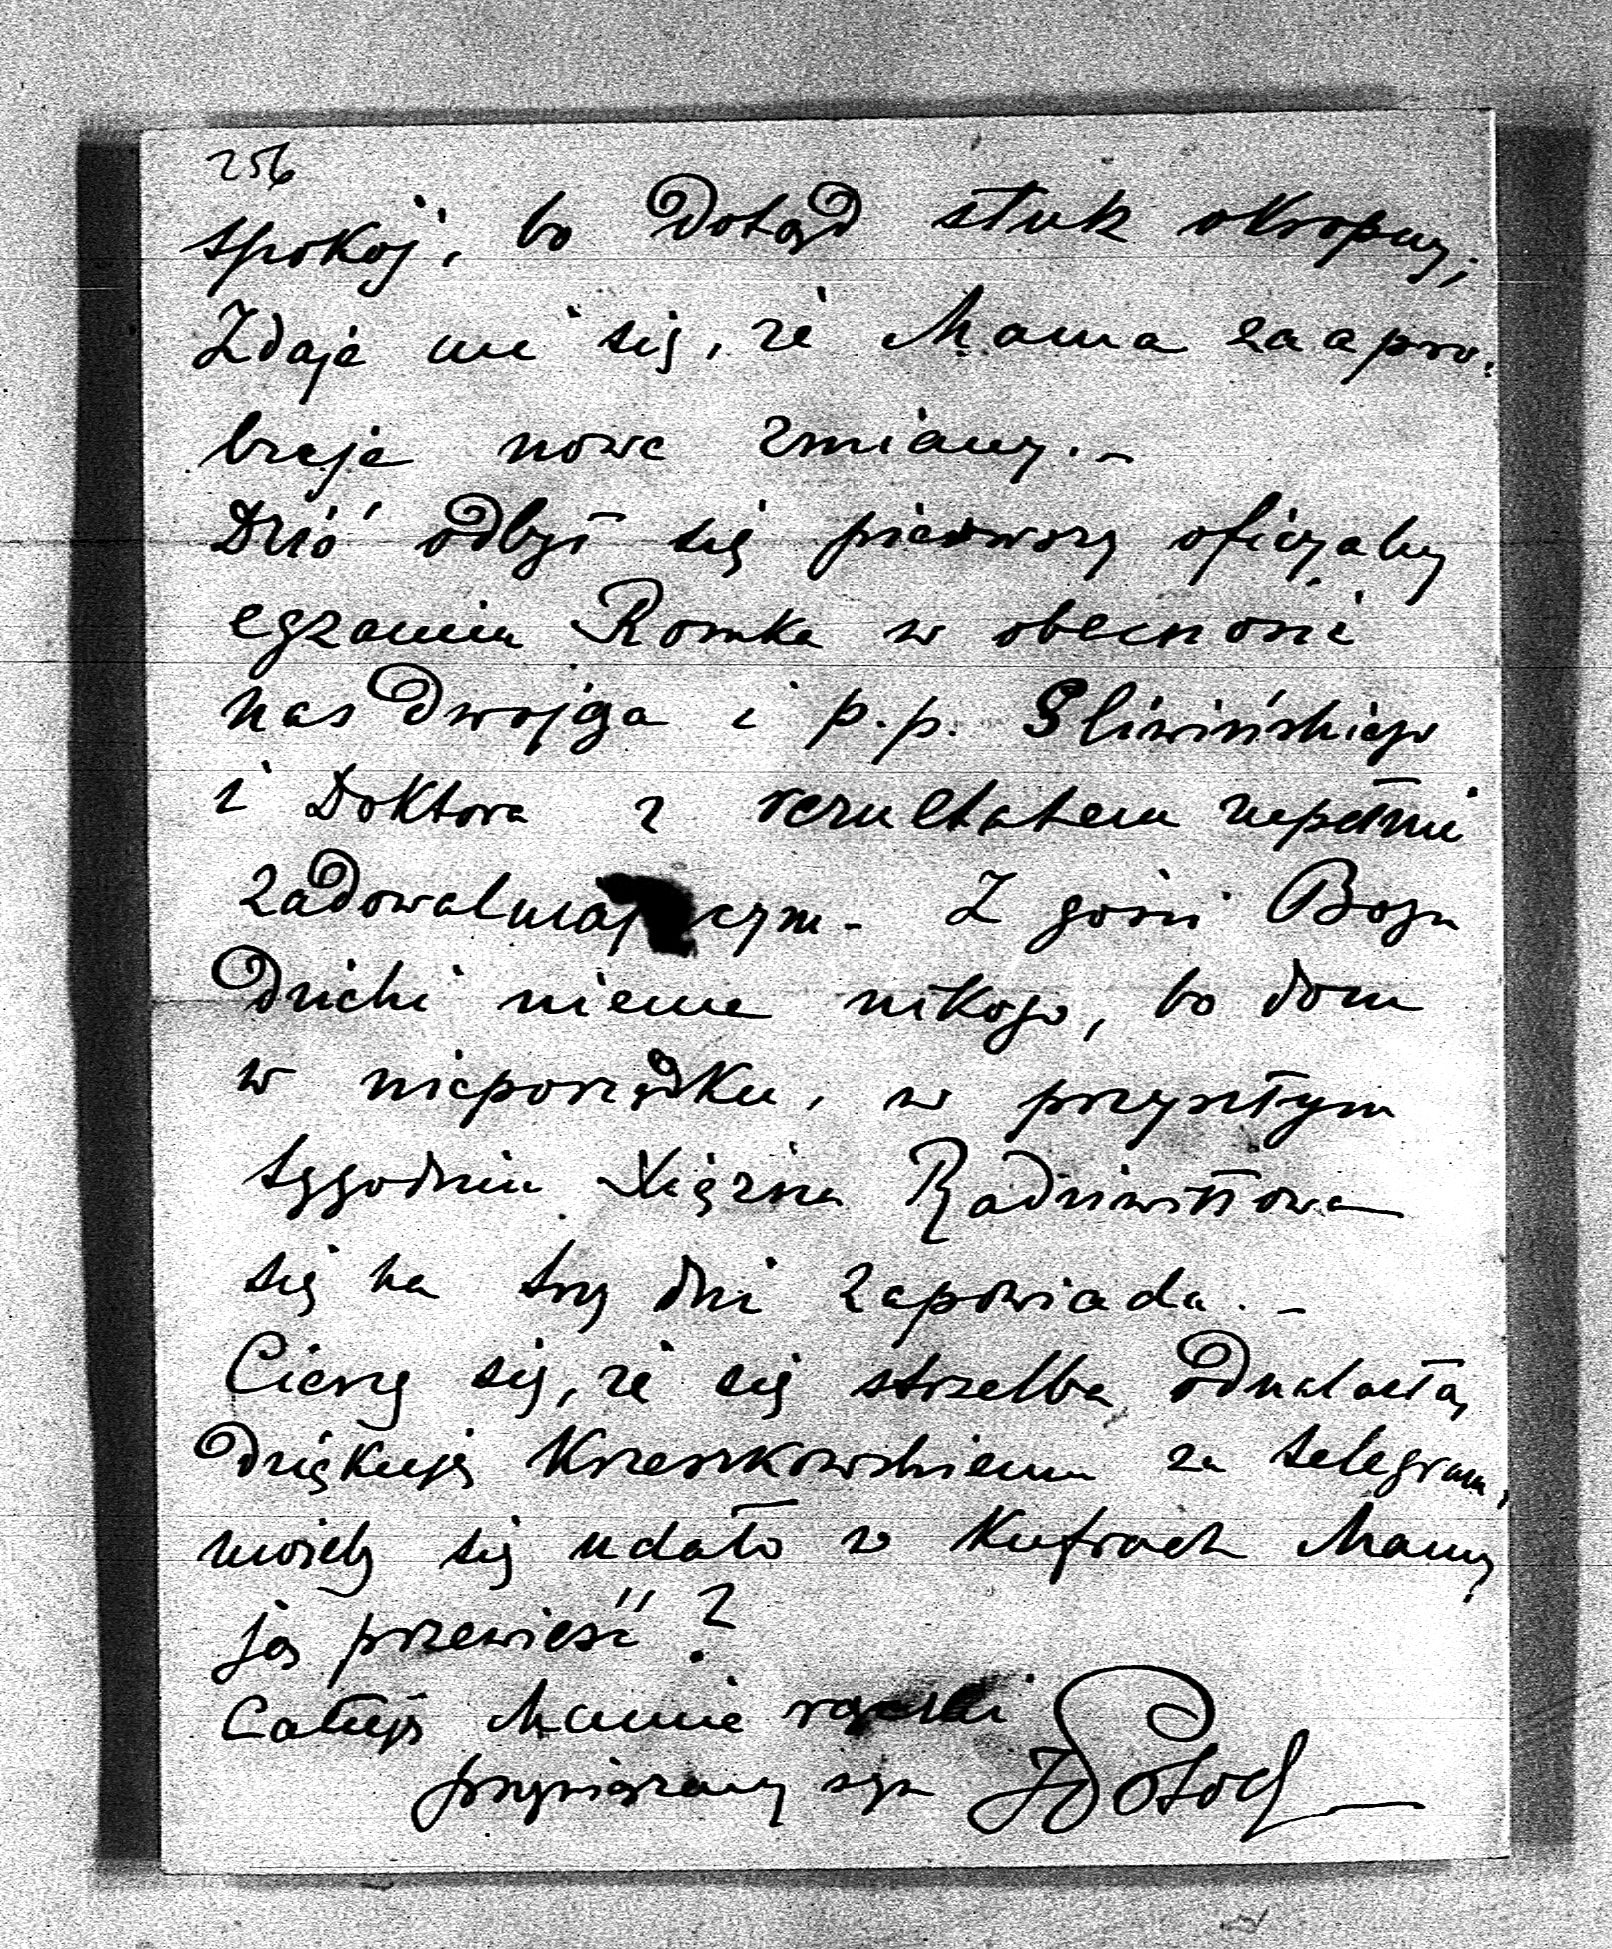 256
spokój, bo dotąd stuk okropny,
Zdaje mi się, że Mama zaapro-
buje nowe zmiany. -
Dziś odbył się pierwszy oficyalny
egzamin Romka w obecności
nas dwojga i p.p. Śliwińskiego
i Doktora z rezultatem zupełnie
zadowalniającym - Z gości Bogu
dzięki niema nikogo, bo dom
w nieporządku, w przyszłym
tygodniu Xiężna Radziwiłłowa
się na trzy dni zapowiada. -
Cieszę się, że się strzelba odnalazła,
dziękuję Kreszkowskiemu za telegram,
możeby się udało w kufrach Mamy
ją przewieść?
Całuję Mamie rączki
przywiązany syn JPotocki